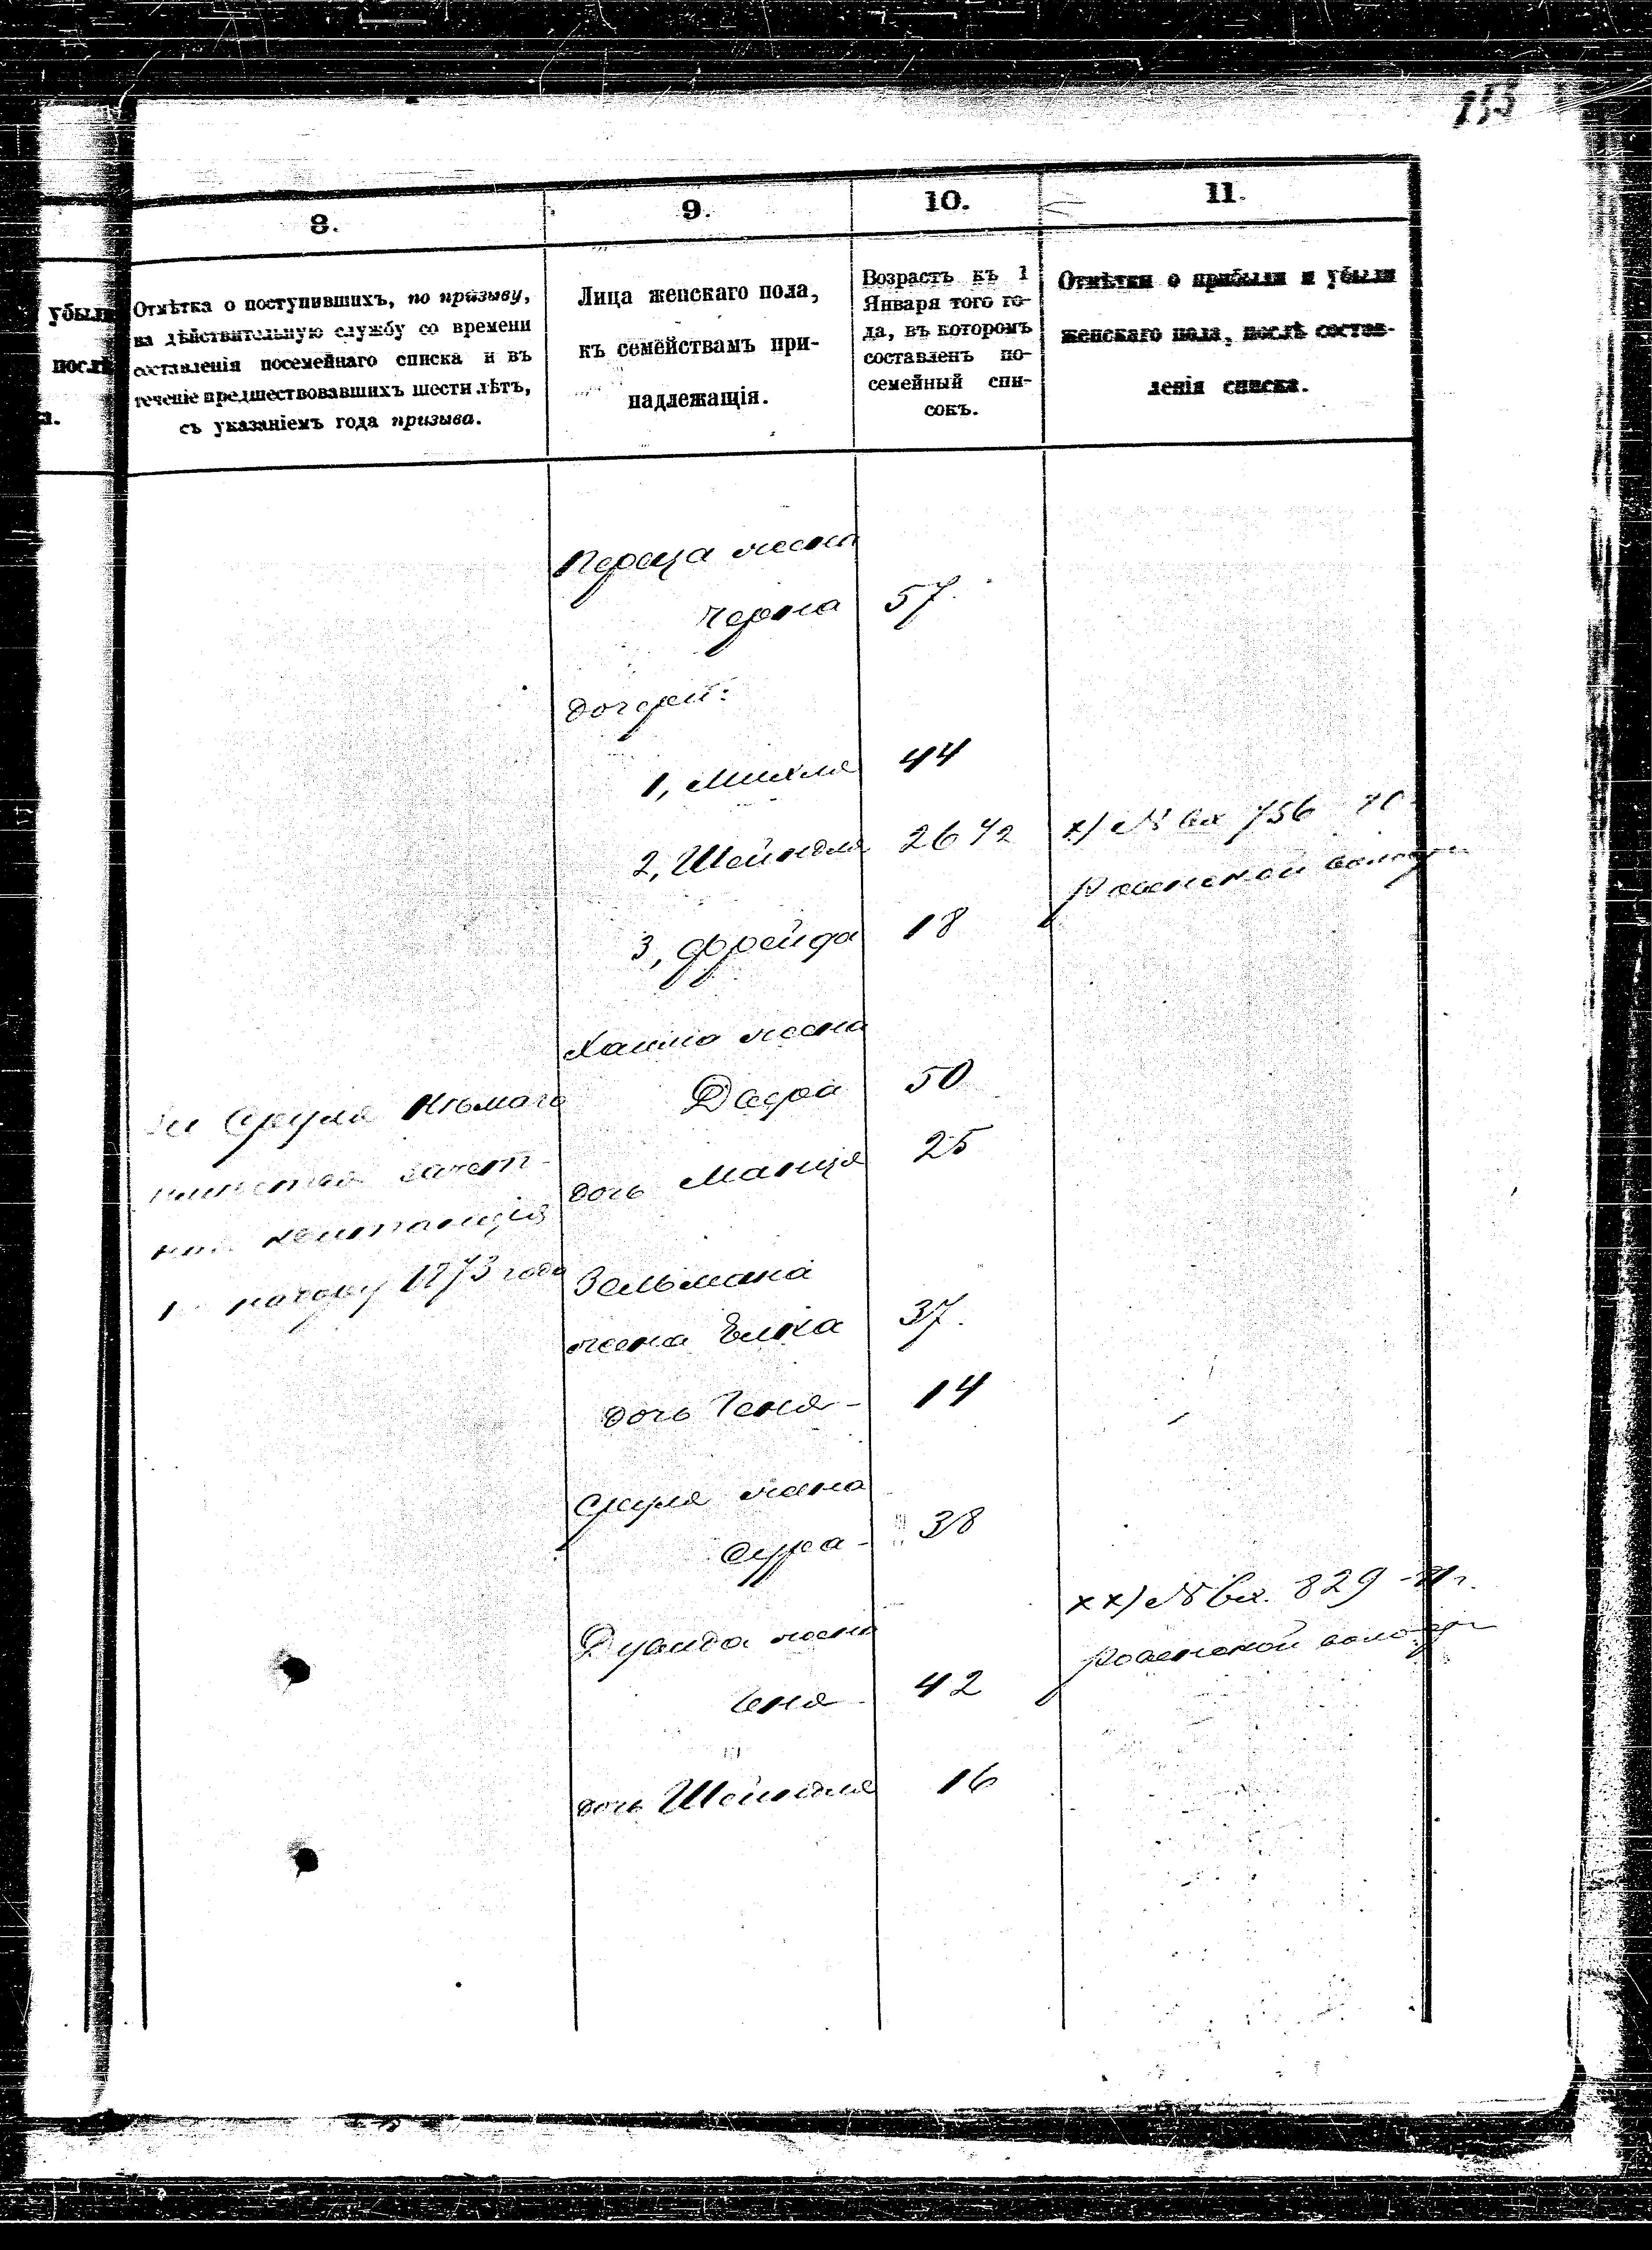 153
8.
9.
10.
11.
убыли
послѣ
а.
Отмѣтка о поступившихъ, по призыву,
на дѣйствительную службу со времени
составленія посемейнаго списка и въ
теченіе предшествовавшихъ шести лѣтъ,
съ указаніемъ года призыва.
Лица женскаго пола,
къ семействамъ при-
надлежащія.
Возрастъ къ 1
Января того го-
да, въ которомъ
составленъ по-
семейный спи-
сокъ.
Отмѣтки о прибыли и убыли
женскаго пола, послѣ состав-
ленія списка.
Переца жена
Черна 57.
дочери:
1, Михля 44
2, Шейндля 26 1/2
х) № вх 756
3, Фрейда 18
жена
50
дочь Манця 25
Сруля
квитанція
1873 года
Зельмана
жена Елка 37.
дочь Геня 14
Сруля жена
Сура 38
Дувида жена
Геня 42
хх) № вх. 829
Ровенской
дочь Шейндля 16